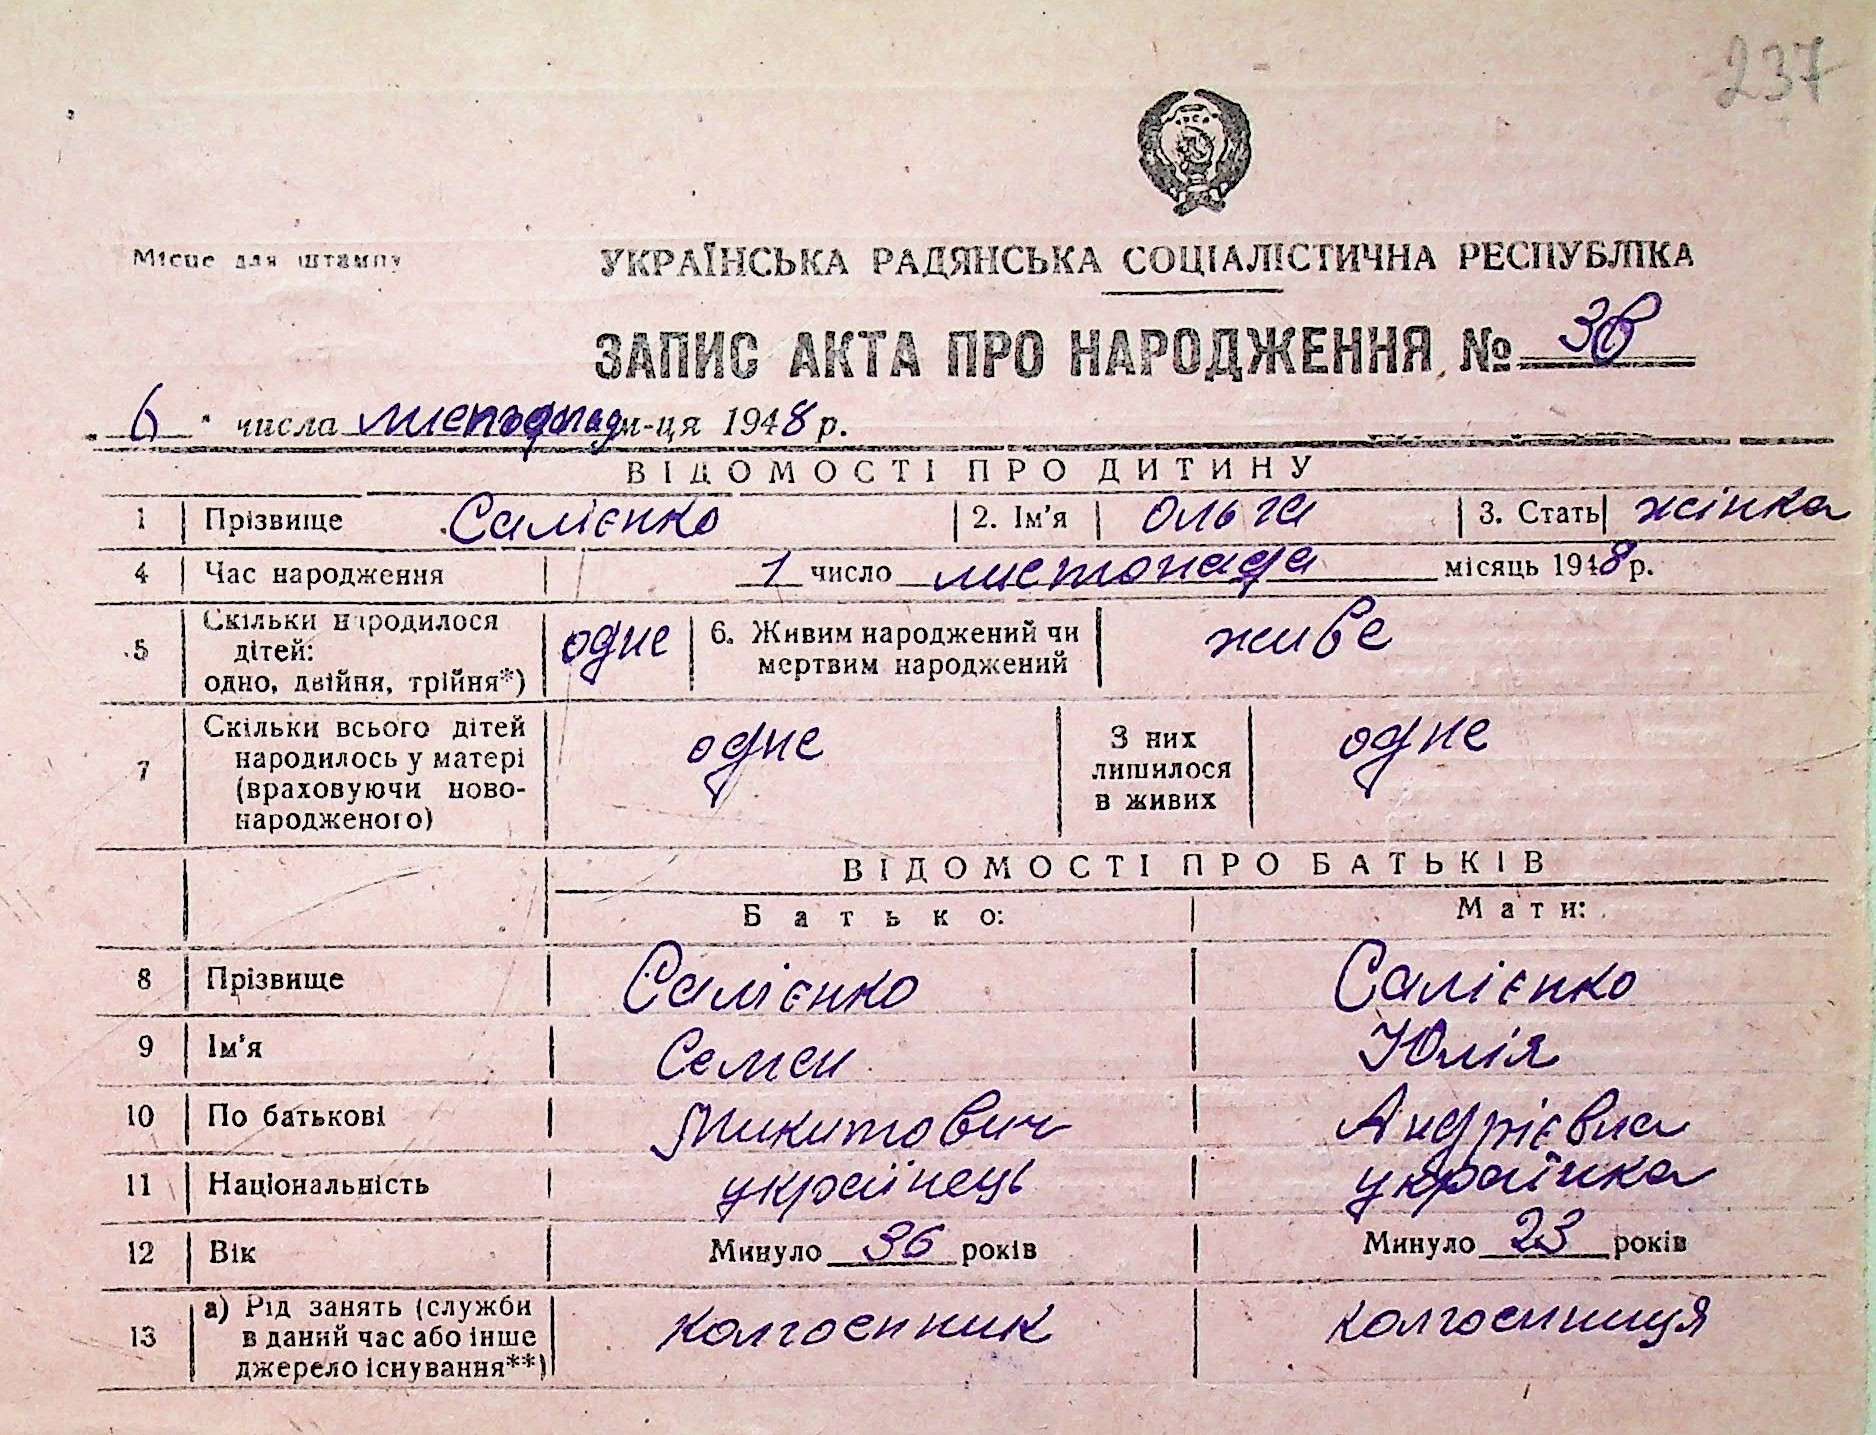 237
Місце для штампу
УКРАЇНСЬКА РАДЯНСЬКА СОЦІАЛІСТИЧНА РЕСПУБЛІКА
ЗАПИС АКТА ПРО НАРОДЖЕННЯ №
6 числа листопад м-ця 1948 р.
ВІДОМОСТІ ПРО ДИТИНУ
1 Прізвище Салієнко 2. Ім'я Ольга 3. Стать жінка
4 Час народження 1 число листопада місяць 1948 р.
5 Скільки народилося дітей: одно, двійня, трійня*) одне 6. Живим народжений чи мертвим народжений живе
7 Скільки всього дітей народилось у матері (враховуючи ново-народженого) одне З них лишилося в живих одне
ВІДОМОСТІ ПРО БАТЬКІВ
Батько: Мати:
8 Прізвище Салієнко Салієнко
9 Ім'я Семен Юлія
10 По батькові Микитович Андрієвна
11 Національність українець українка
12 Вік Минуло 36 років Минуло 23 років
13 а) Рід занять (служби в даний час або інше джерело існування**) колгоспник колгоспниця